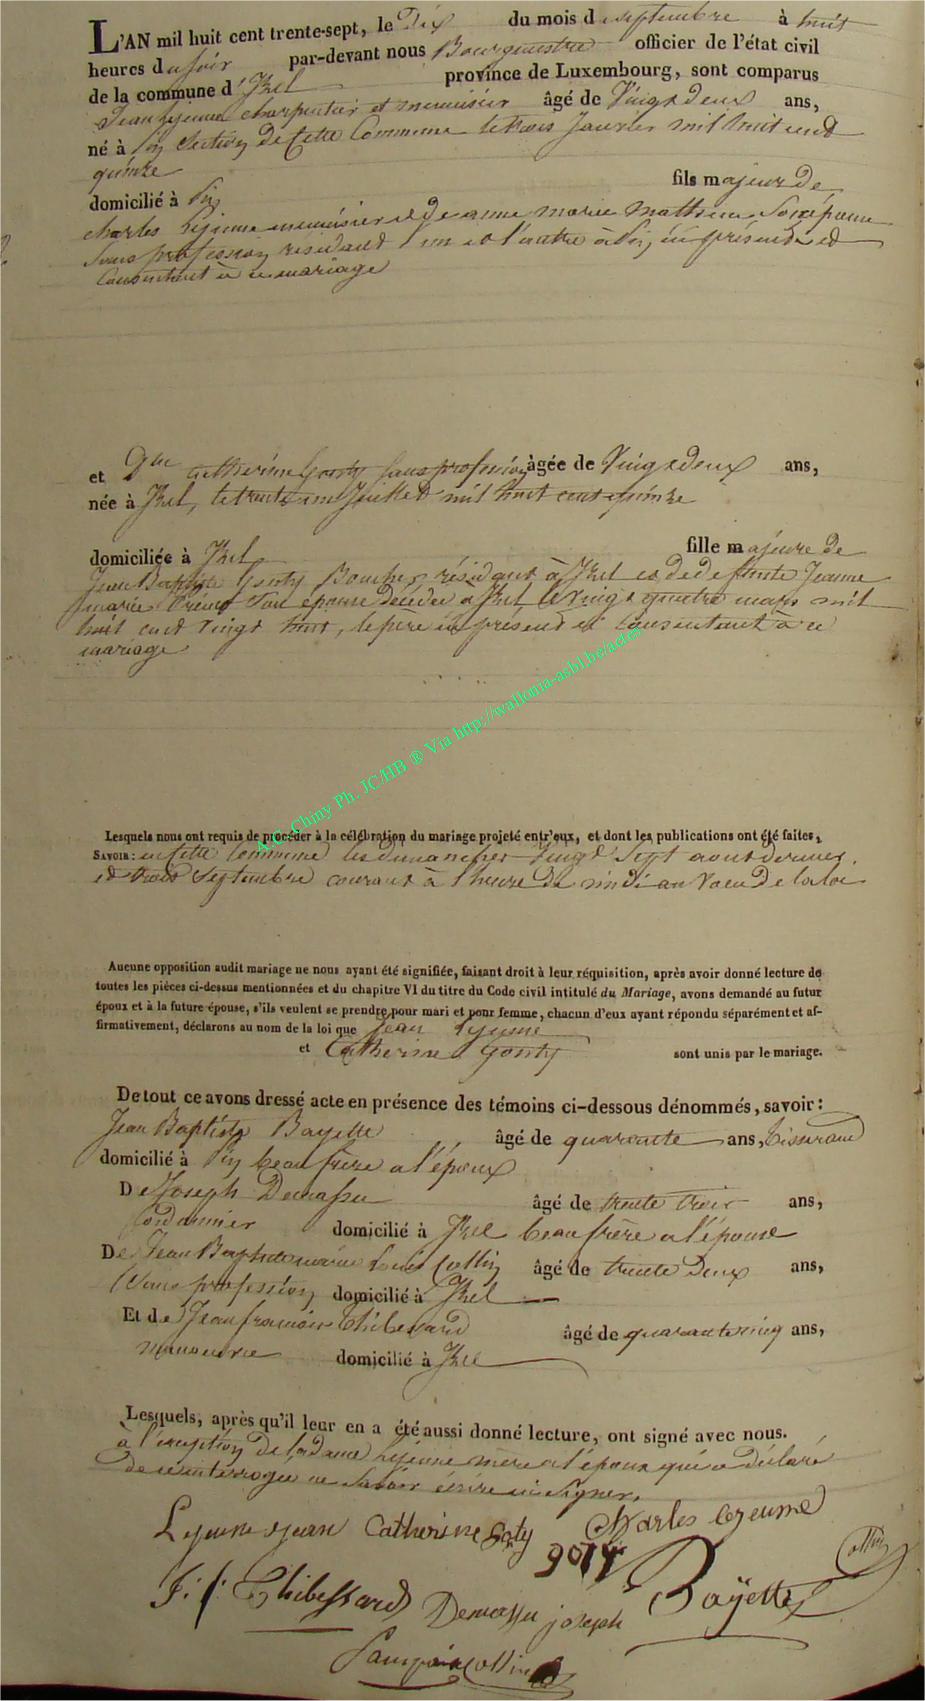 L'AN mil huit cent trente-sept, le Dix du mois de septembre à huit
heures du soir par-devant nous Bourguestre officier de l'état civil
de la commune d'Izel province de Luxembourg, sont comparus
Jean Lejeune charpentier et menuisier âgé de Vingt deux ans,
né à Pin Section de Cette Commune le trois Janvier mil huit cent
quinze
domicilié à Pin fils majeur de
charles Lejeune menuisier et de anne marie mathieu Son épouse
Sans profession residant l'un et l'autre à Pin, ici présents et
Consentent à ce mariage
et Dlle Catherine Gonty Sans profession âgée de Vingt deux ans,
née à Izel, le trente un Juillet mil huit cent quinze
domiciliée à Izel fille majeure de
Jean Baptiste Gonty Boucher résidant à Izel et de defunte Jeanne
marie Son épouse Décédée à Izel le Vingt quatre mars mil
huit cent Vingt huit, le père ici présent et Consentant à ce
mariage
A.C. Chiny Ph. JC/HB ® Via http://wallonia-asbl.be/actes
Lesquels nous ont requis de procéder à la célébration du mariage projeté entr'eux, et dont les publications ont été faites,
SAVOIR: en Cette Commune les Dimanches Vingt Sept aout dernier
et trois Septembre courant à l'heure de midi au Voeu De la loi
Aucune opposition audit mariage ne nous ayant été signifiée, faisant droit à leur réquisition, après avoir donné lecture de
toutes les pièces ci-dessus mentionnées et du chapitre VI du titre du Code civil intitulé du Mariage, avons demandé au futur
époux et à la future épouse, s'ils veulent se prendre pour mari et pour femme, chacun d'eux ayant répondu séparément et af-
firmativement, déclarons au nom de la loi que Jean Lejeune
et Catherine Gonty sont unis par le mariage.
De tout ce avons dressé acte en présence des témoins ci-dessous dénommés, savoir:
Jean Baptiste Bayette âgé de quarante ans, tisserand
domicilié à Pin beau frère a l'époux
De Joseph Demassu âgé de trente trois ans,
Cordonnier domicilié à Izel beau frère a l'épouse
De Jean Baptiste marie Louis Collin âgé de trente Deux ans,
Sans profession domicilié à Izel
Et de Jean francois Thibessard âgé de quarante cinq ans,
manoeuvre domicilié à Izel
Lesquels, après qu'il leur en a été aussi donné lecture, ont signé avec nous.
à l'exception De la dame Lejeune mère a l'époux qui a Déclaré
de ce interrogée ne Savoir écrire ni Signer.
Lejeune jean Catherine Goty Charles lejeune
9074 Collin
J: f: Thibessard Demassu joseph Bayette
Collin